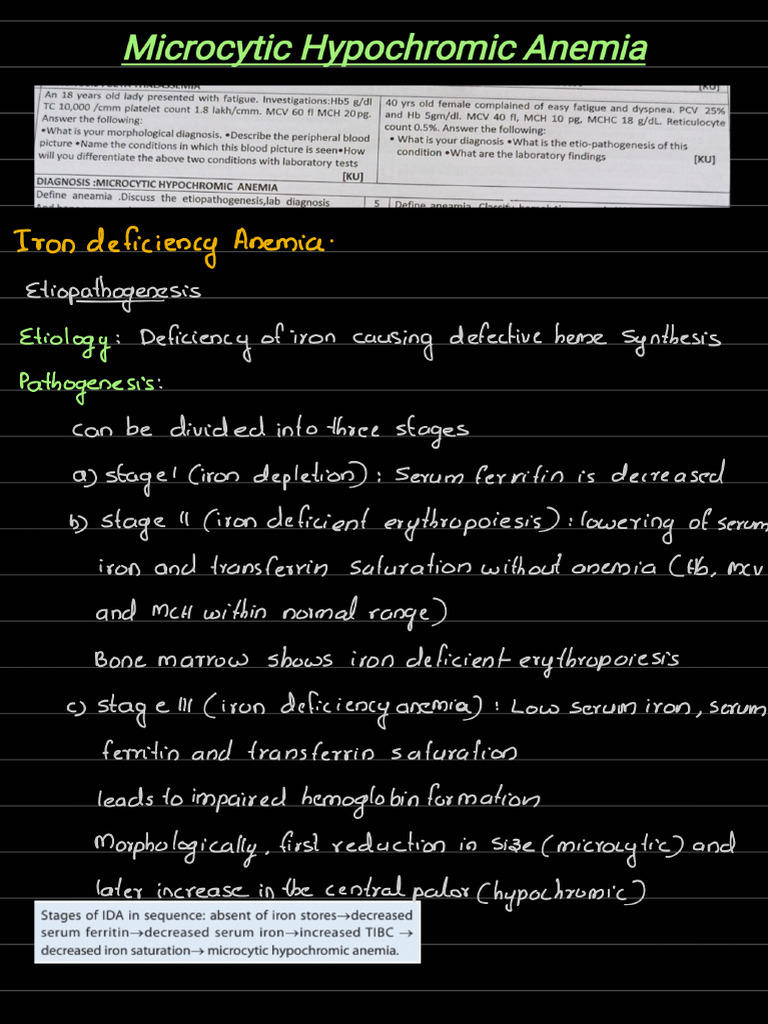 Microcytic Hypochromic Anemia
[KU]
An 18 years old lady presented with fatigue. Investigations:Hb5 g/dl
TC 10,000 /cmm platelet count 1.8 lakh/cmm. MCV 60 fl MCH 20pg.
Answer the following:
•What is your morphological diagnosis. •Describe the peripheral blood
picture •Name the conditions in which this blood picture is seen•How
will you differentiate the above two conditions with laboratory tests
[KU]
40 yrs old female complained of easy fatigue and dyspnea. PCV 25%
and Hb 5gm/dl. MCV 40 fl, MCH 10 pg, MCHC 18 g/dL. Reticulocyte
count 0.5%. Answer the following:
• What is your diagnosis •What is the etio-pathogenesis of this
condition •What are the laboratory findings
[KU]
DIAGNOSIS :MICROCYTIC HYPOCHROMIC ANEMIA
Define aneamia .Discuss the etiopathogenesis,lab diagnosis
5
Define aneamia.
Iron deficiency Anemia.
Etiopathogenesis
Etiology: Deficiency of iron causing defective heme synthesis
Pathogenesis:
can be divided into three stages
a) stage I (iron depletion): Serum ferritin is decreased
b) stage II (iron deficient erythropoiesis): lowering of serum
iron and transferrin saturation without anemia (Hb, MCV
and MCH within normal range)
Bone marrow shows iron deficient erythropoiesis
c) stage III (iron deficiency anemia): Low serum iron, serum
ferritin and transferrin saturation
leads to impaired hemoglobin formation
Morphologically, first reduction in size (microcytic) and
later increase in the central palor (hypochromic)
Stages of IDA in sequence: absent of iron stores→decreased
serum ferritin→decreased serum iron→increased TIBC →
decreased iron saturation→ microcytic hypochromic anemia.